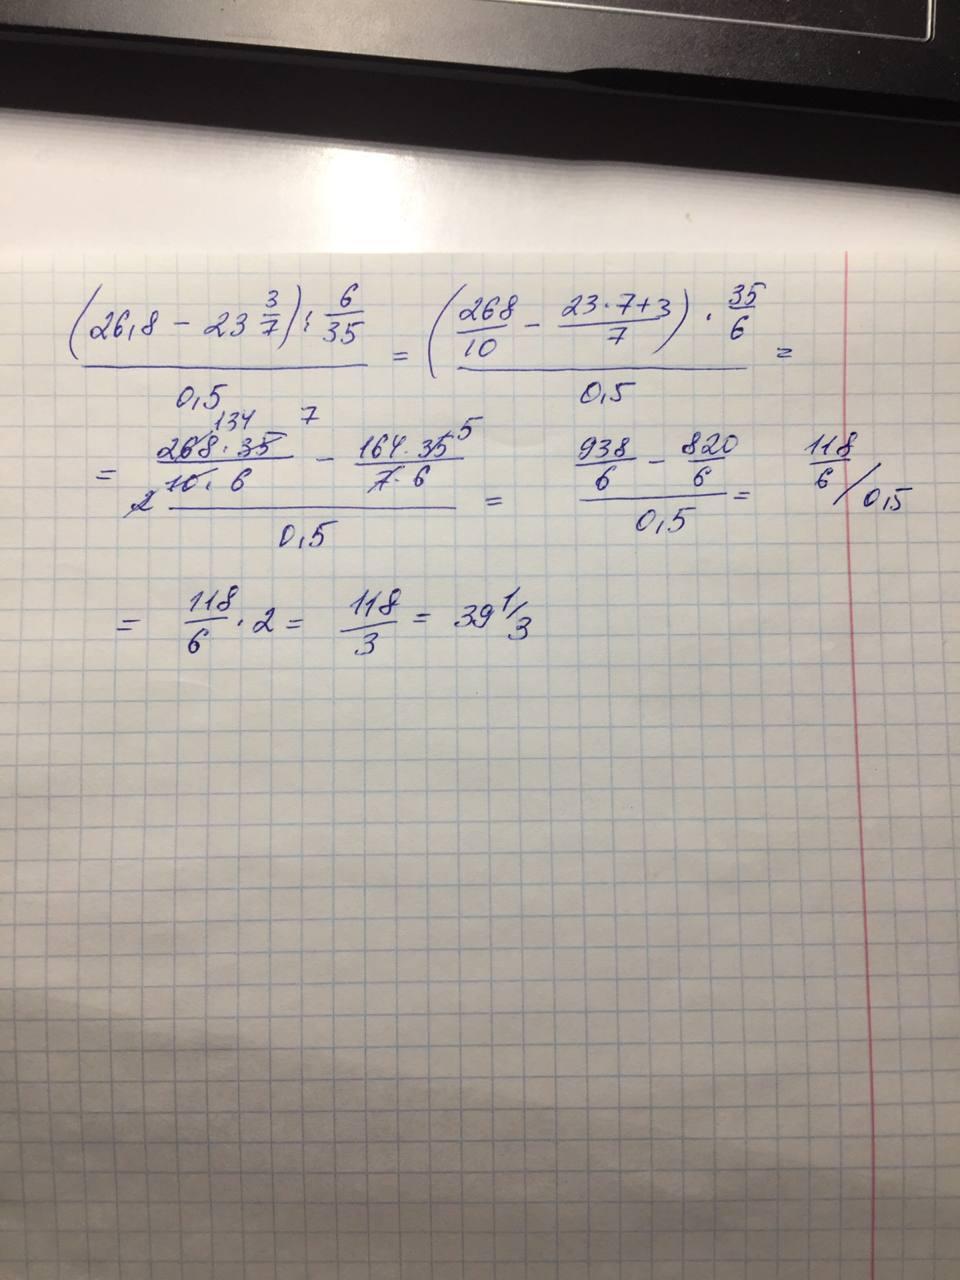 (26,8 - 23 3/7) : 6/35 / 0,5 = (268/10 - 23·7+3/7) · 35/6 / 0,5 =
= 134 7 268·35/10·6 2 - 164·35 5/7·6 / 0,5 = 938/6 - 820/6 / 0,5 = 118/6 / 0,5
= 118/6 · 2 = 118/3 = 39 1/3